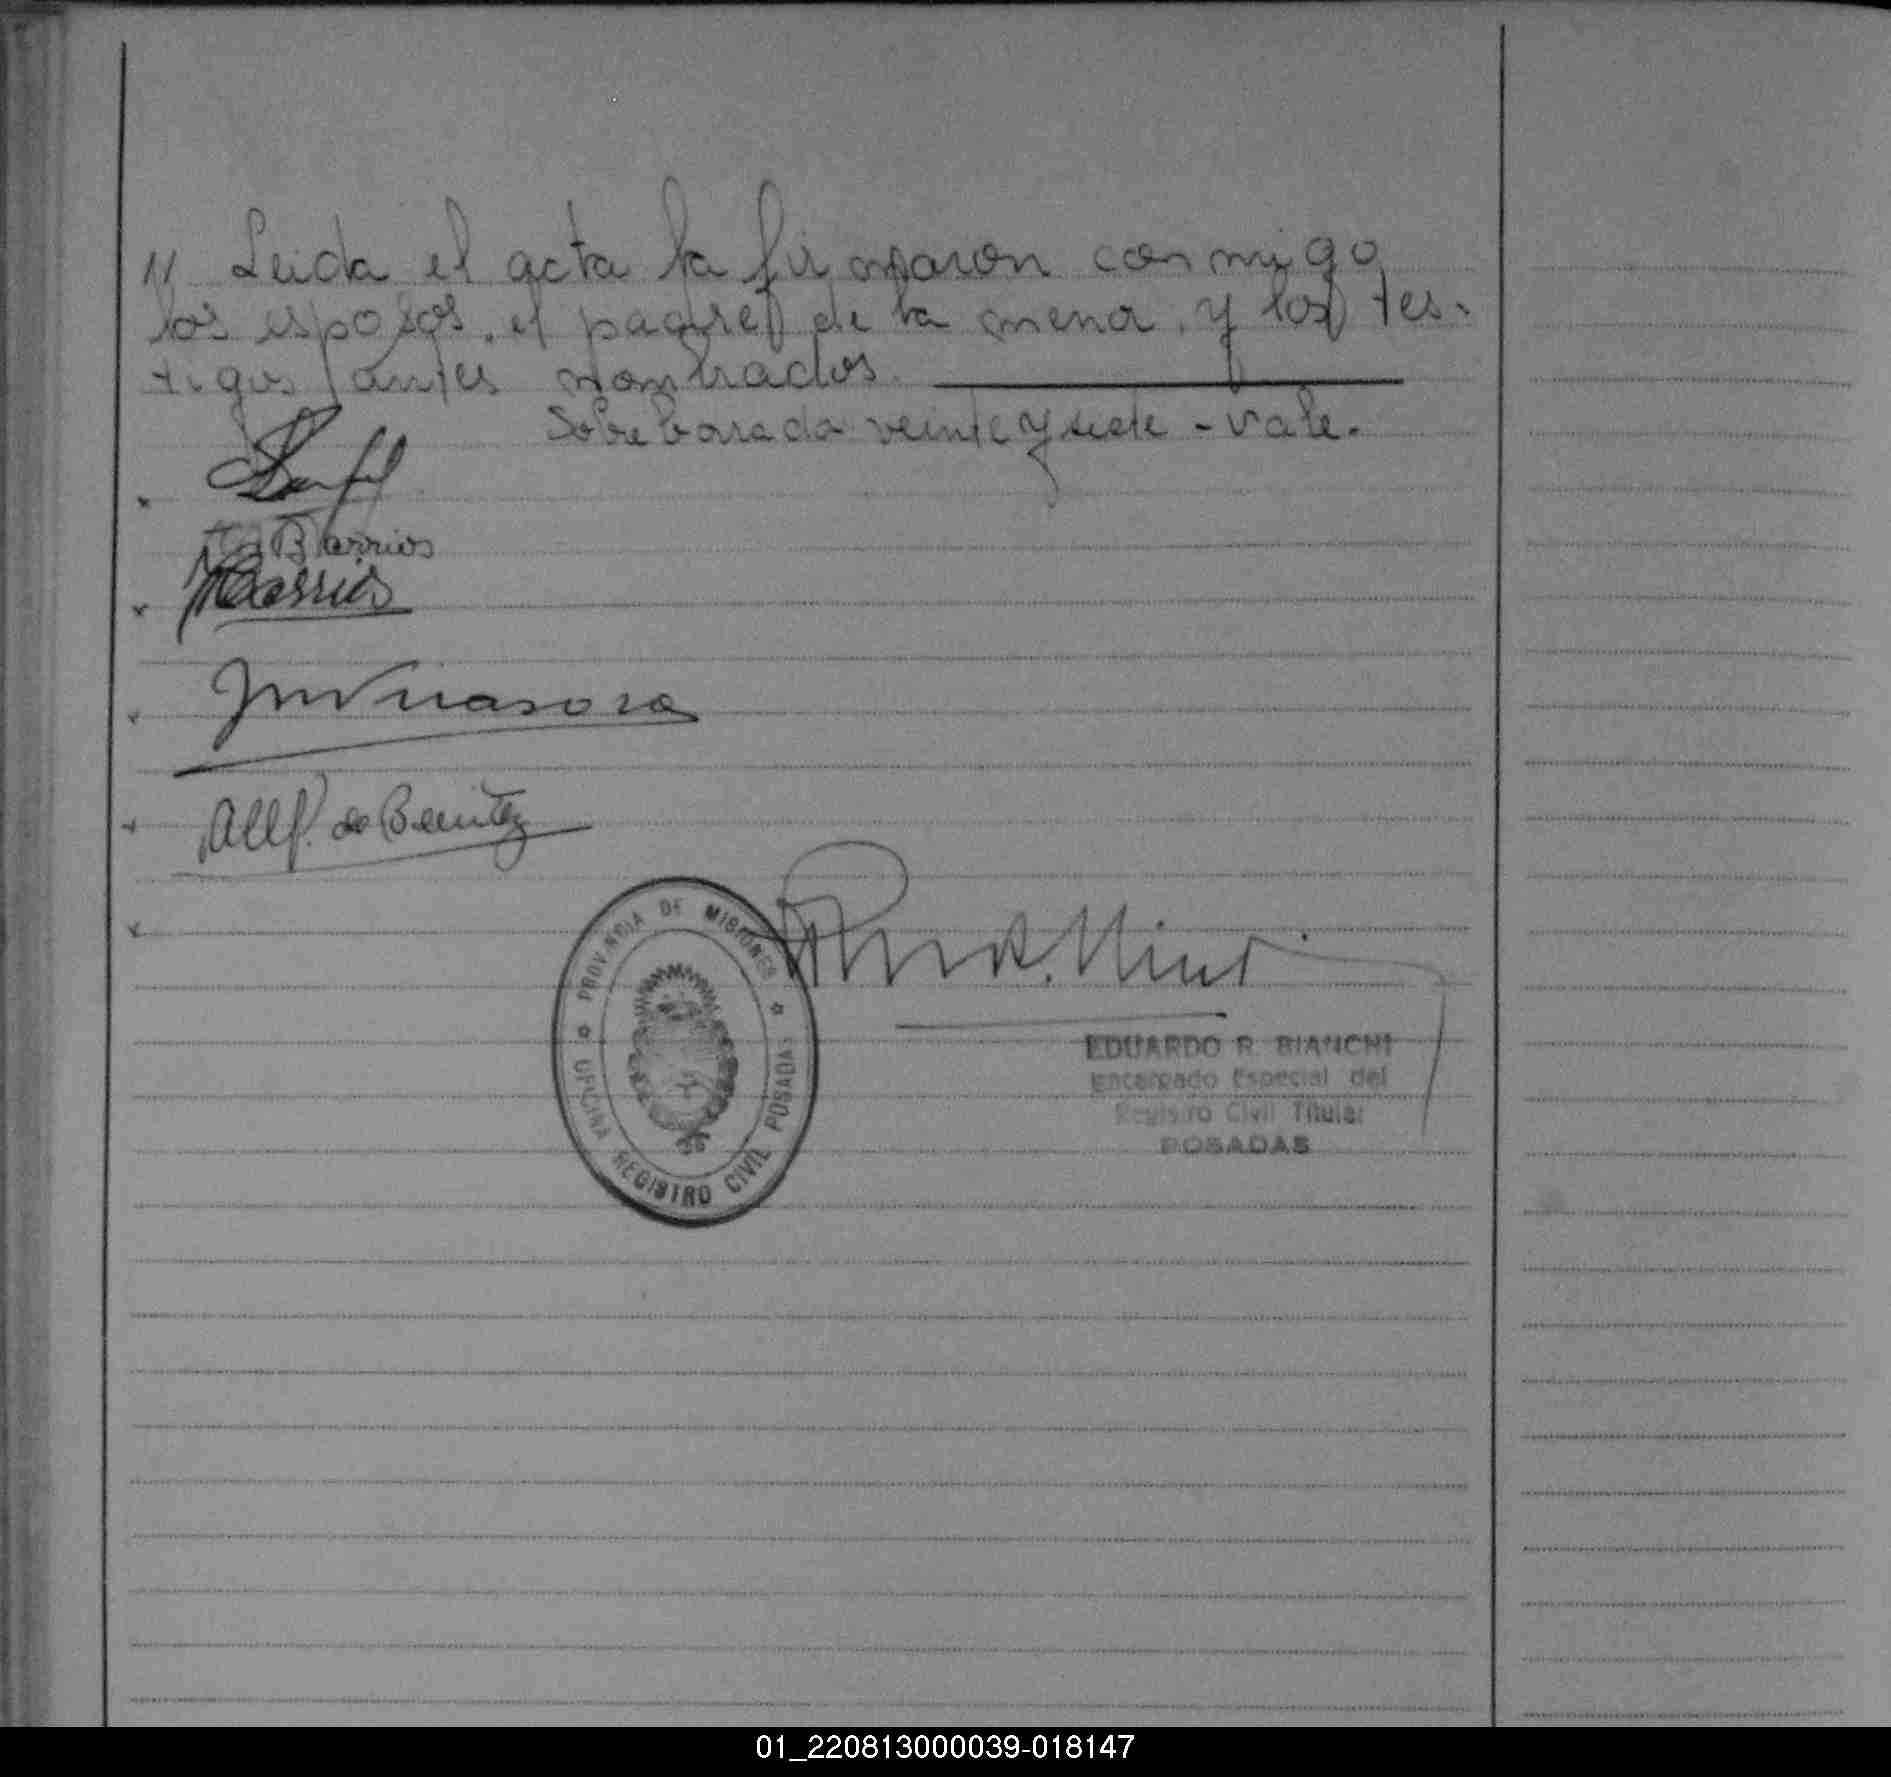 11 Leida el acta la firmaron conmigo
los esposos, el padre de la menor, y los tes-
tigos antes nombrados.
Sobre borrado veinte y siete - vale.
Barrios
Barrios
de Benitez
PROVINCIA DE MISIONES
OFICINA REGISTRO CIVIL POSADAS
EDUARDO R. BIANCHI
Encargado Especial del
Registro Civil Titular
POSADAS
01_220813000039-018147